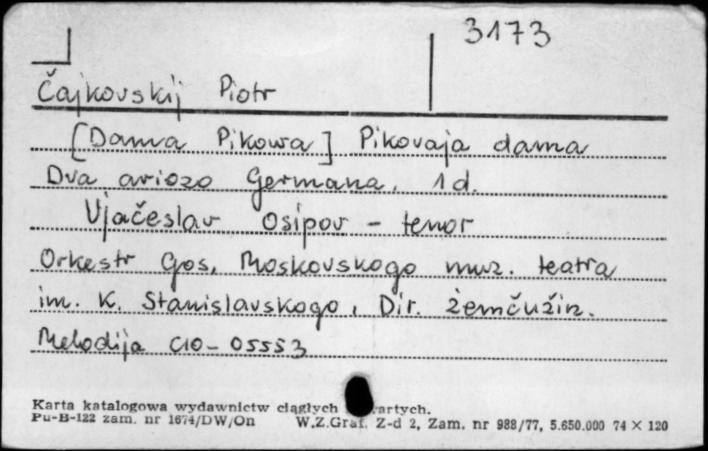 3173
Čajkovskij Piotr
[Dama Pikowa] Pikovaja dama
Dva ariozo Germana, 1d.
Vjačeslav Osipov - tenor
Orkestr Gos, Moskovskogo muz. teatra
im. K. Stanislavskogo, Dir. Žemčužin.
Melodija C10-05553
Karta katalogowa wydawnictw ciągłych artych.
Pu-B-122 zam. nr 1674/DW/On W.Z.Graf. Z-d 2, Zam. nr 988/77, 5.650.000 74 × 120